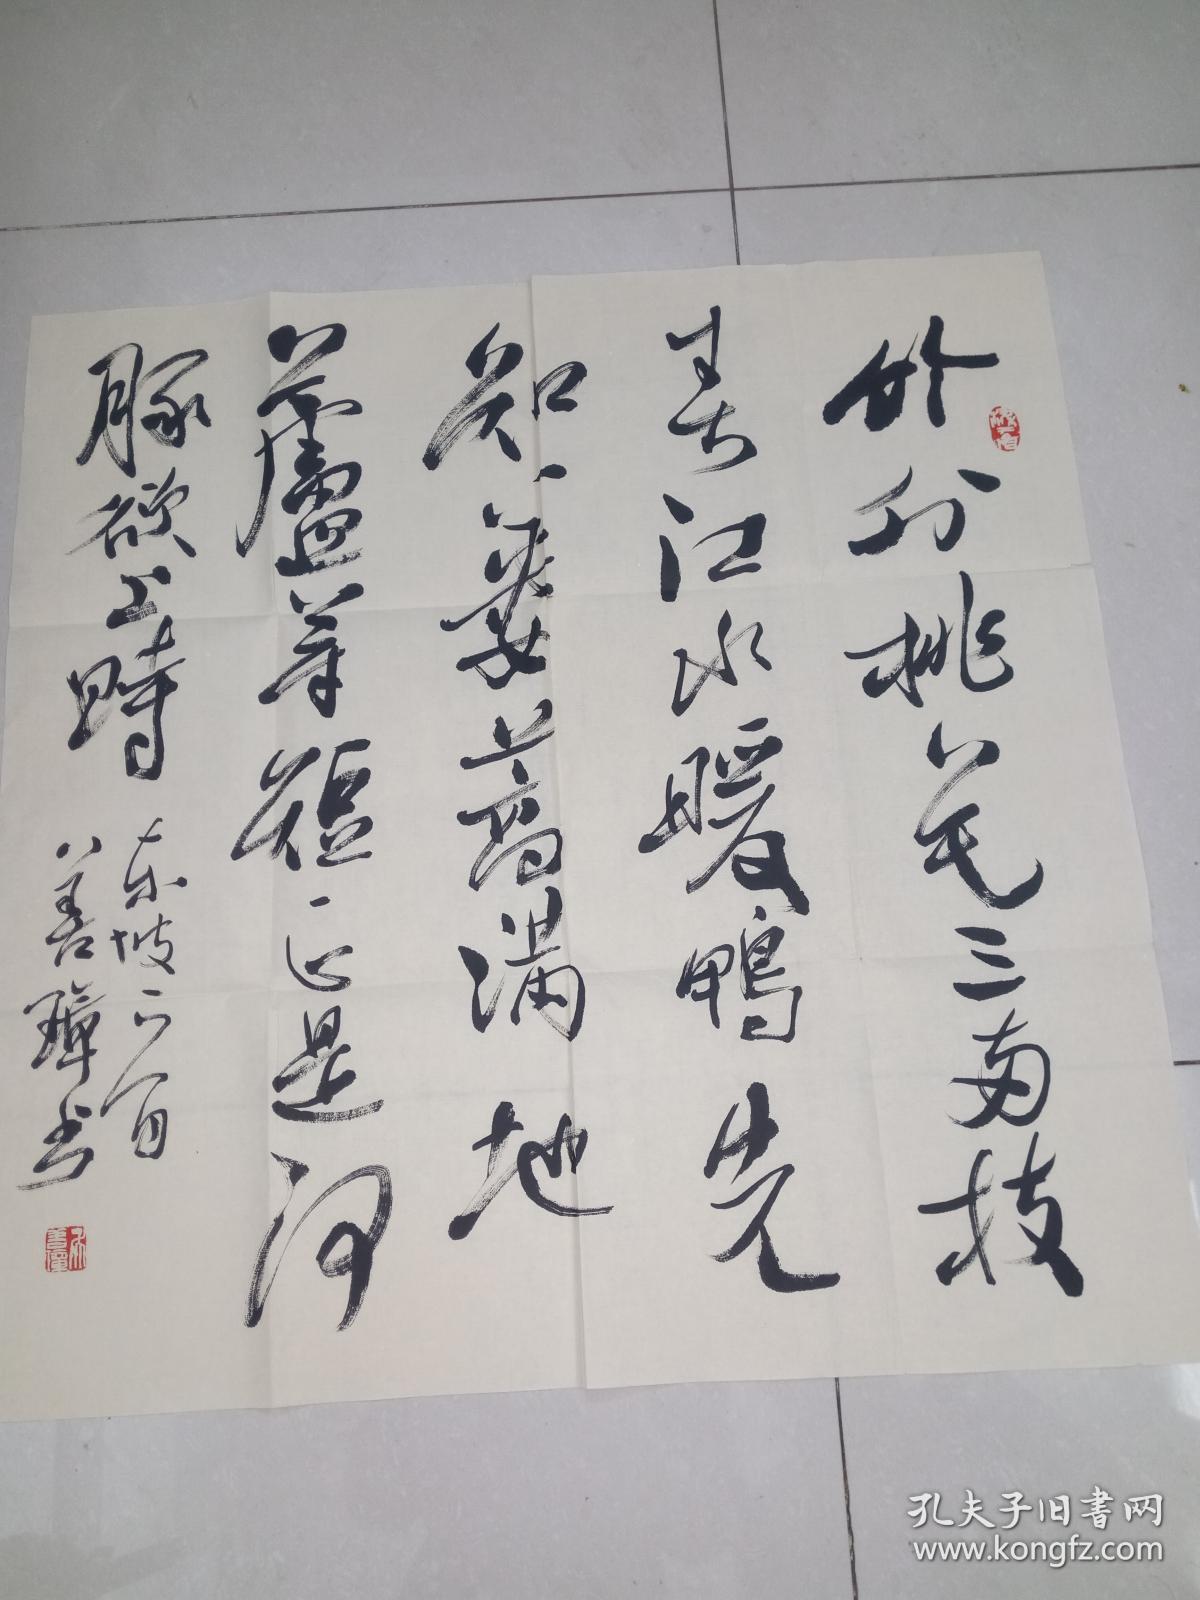 竹外桃花三两枝
春江水暖鸭先
知蒌蒿满地
蘆芽短正是河
豚欲上時
东坡
善璋书
孔夫子旧书网
www.kongfz.com